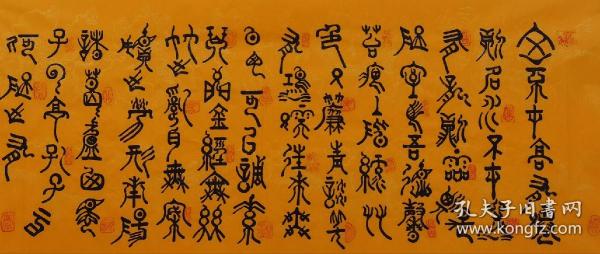 山不在高有僊
則名水不在深
有龍則靈斯是
陋室惟吾德馨
苔痕上階綠草
色入簾青談笑
有鴻儒往來無
白丁可以調素
琴閱金經無絲
竹之亂耳無案
牘之勞形南陽
諸葛廬西蜀
子雲亭孔子云
何陋之有
孔夫子旧书网
www.kongfz.com